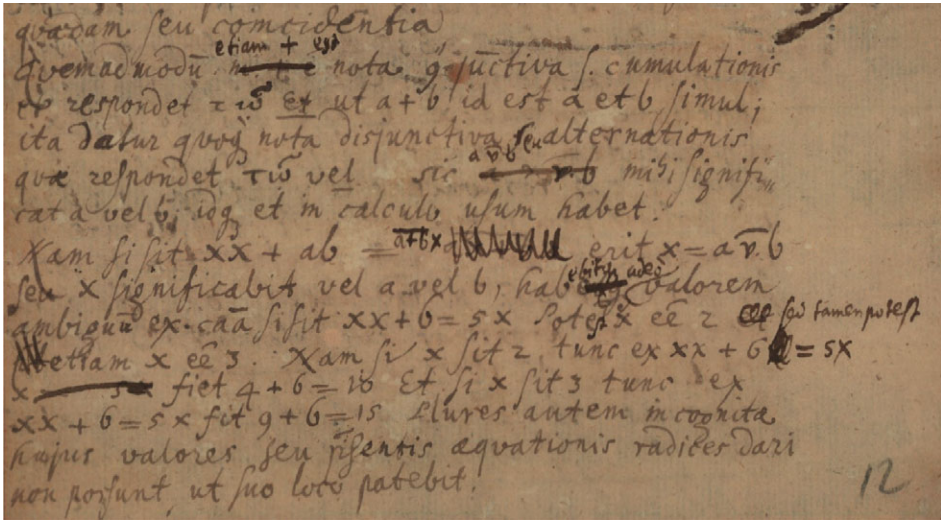 quadam seu coincidentia
etiam +
quemadmodū nota ꝯjūctiva s. cumulationis
respondet τῷ et ut a + b id est a et b simul;
ita datur quoqȝ nota disjunctiva seu alternationis
quæ respondet τῷ vel sic a v̄ b mihi signifi
cat a vel b; idqȝ et in calculo usum habet.
Nam si sit xx + ab = a+b x erit x = a v̄ b
seu x significabit vel a vel b, adeo valorem
ambiguū ex. caā si sit xx + 6 = 5x potest x eē 2 sed tamen potest
etiam x eē 3. Nam si x sit 2 tunc ex xx + 6 = 5x
fiet 4 + 6 = 10 Et si x sit 3 tunc ex
xx + 6 = 5x fit 9 + 6 = 15 Plures autem incognitæ
hujus valores seu p̄sentis æquationis radices dari
non possunt ut suo loco patebit.
12